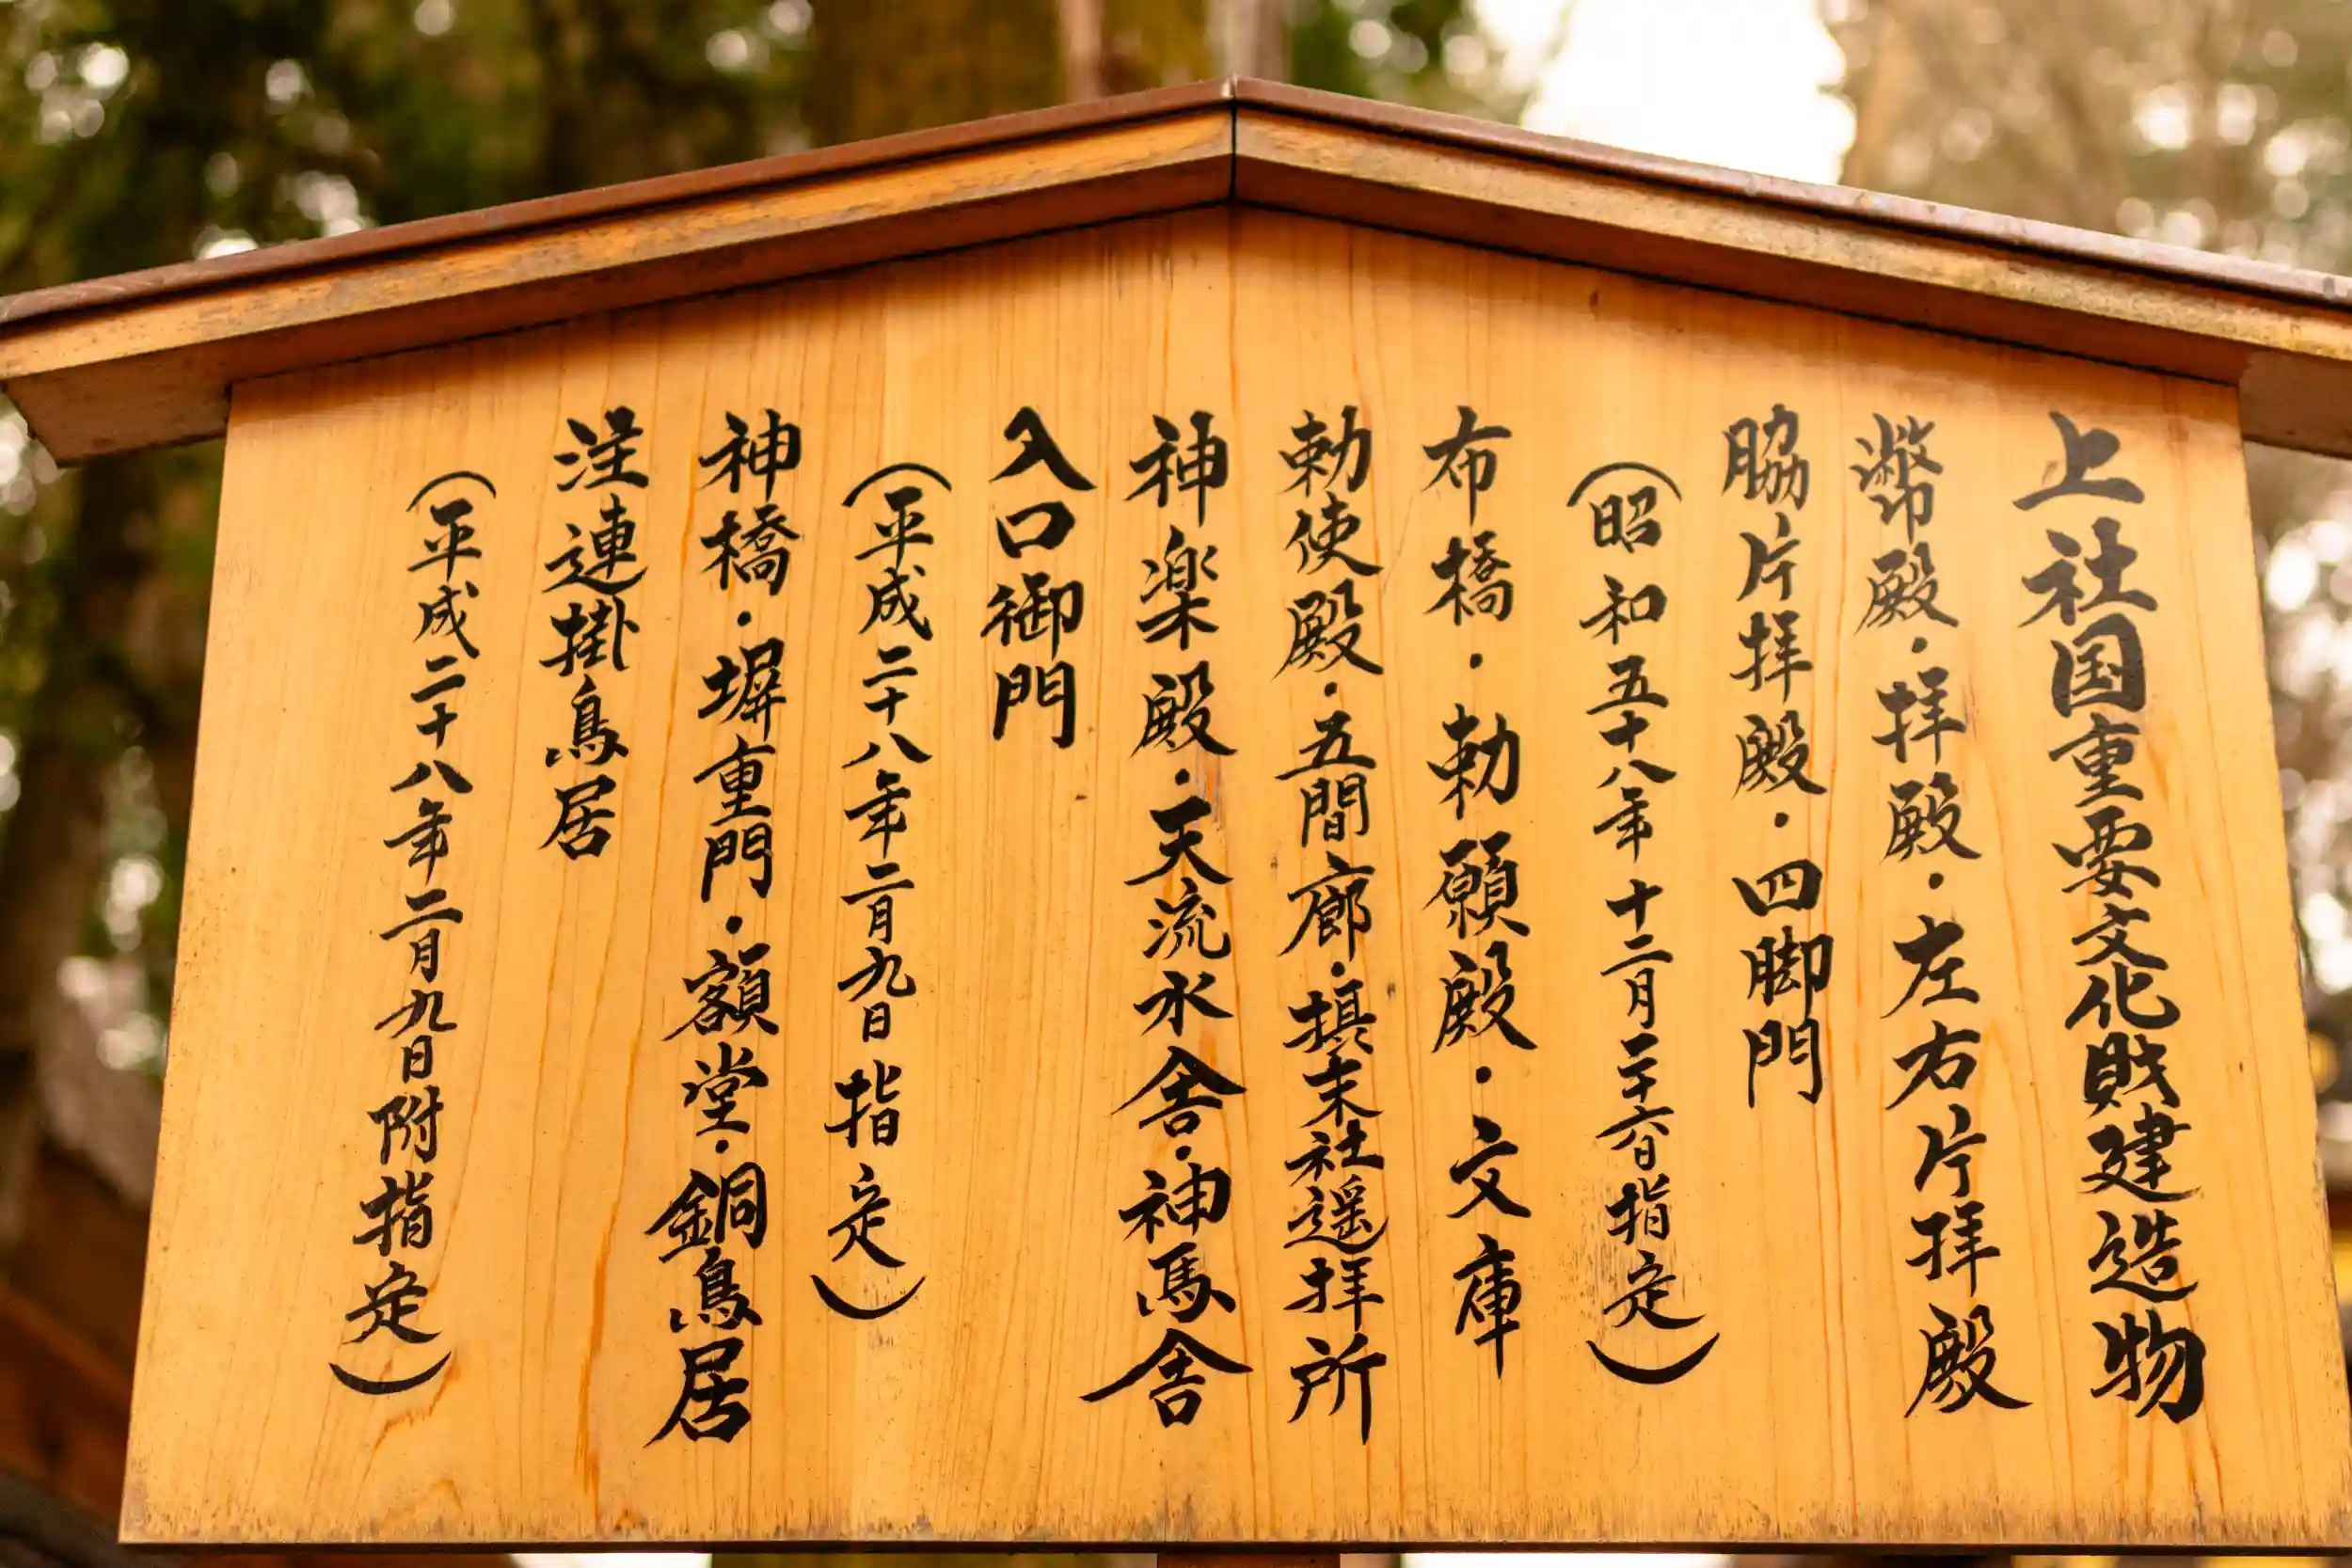 上社国重要文化財建造物
幣殿・拝殿・左右片拝殿
脇片拝殿・四脚門
(昭和五十八年十二月二十六日指定)
布橋・勅願殿・文庫
勅使殿・五間廊・摂末社遥拝所
神楽殿・天流水舎・神馬舎
入口御門
(平成二十八年二月九日指定)
神橋・塀重門・額堂・銅鳥居
注連掛鳥居
(平成二十八年二月九日附指定)